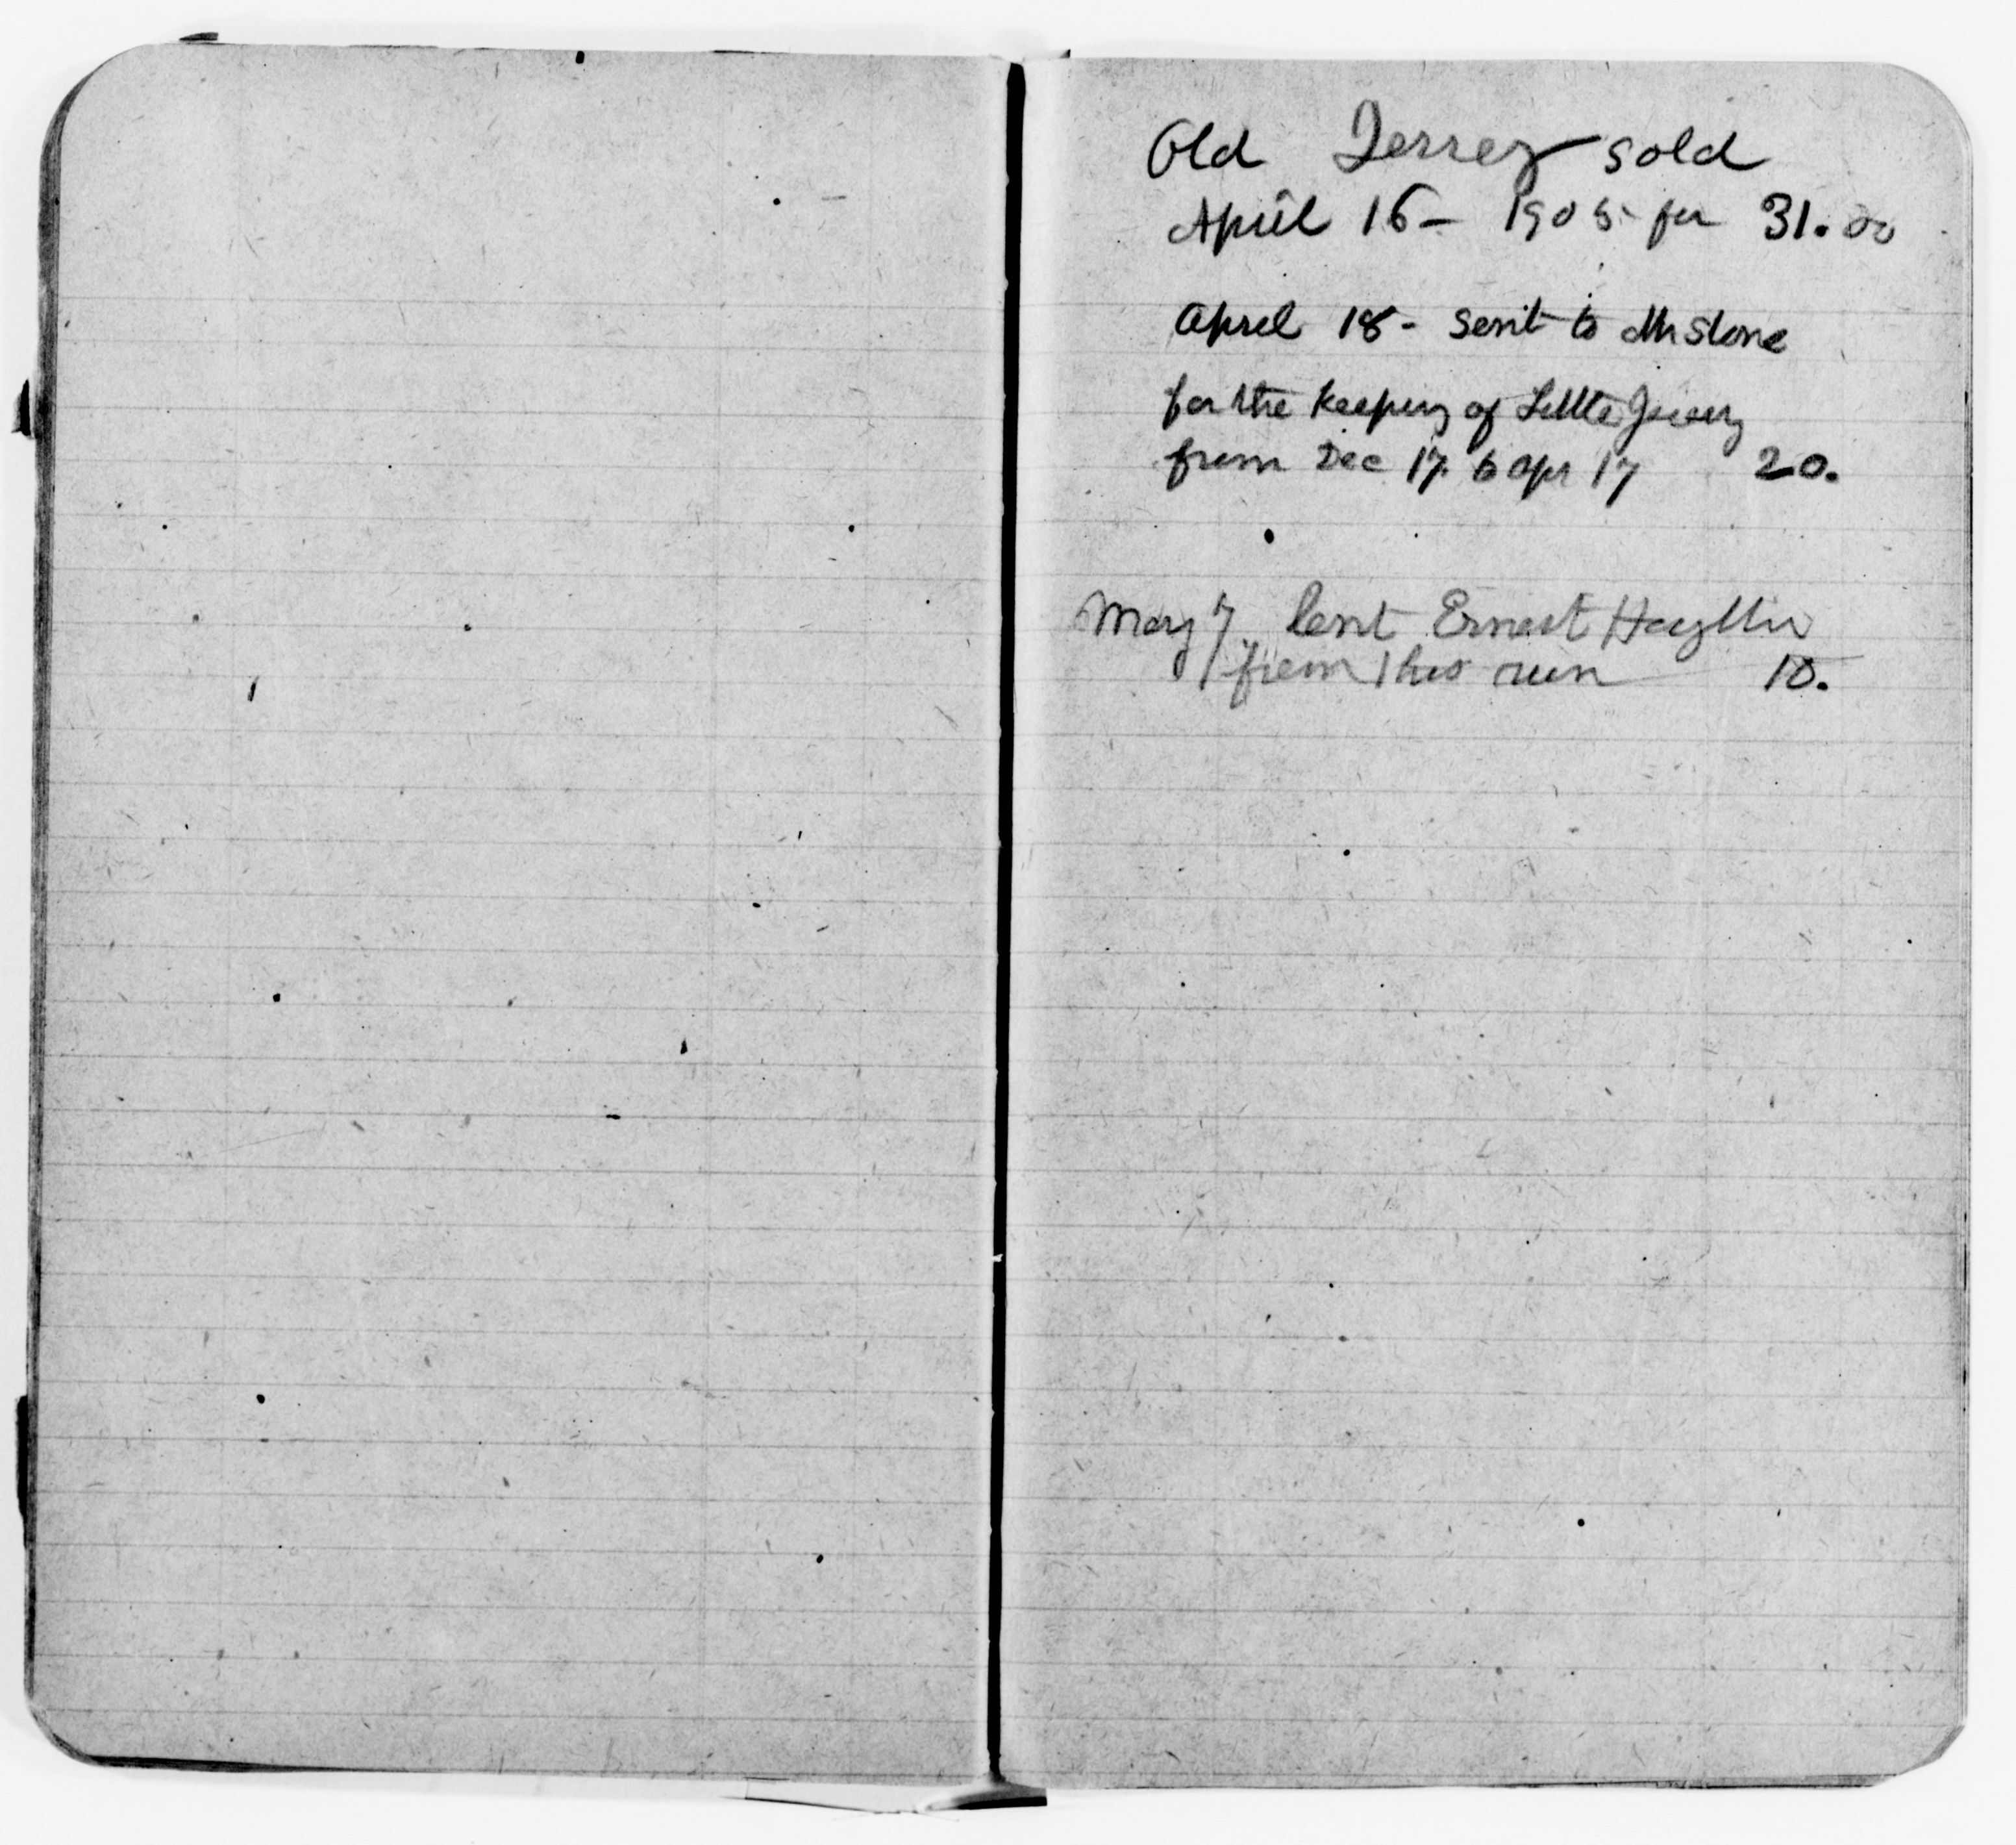 Old Jersey sold
April 16- 1905 for 31.00
April 18- sent to Mr Stone
for the keeping of Little Jersey
from Dec 17. to apr 17 20.
May 7. lent Ernest
from this run 10.